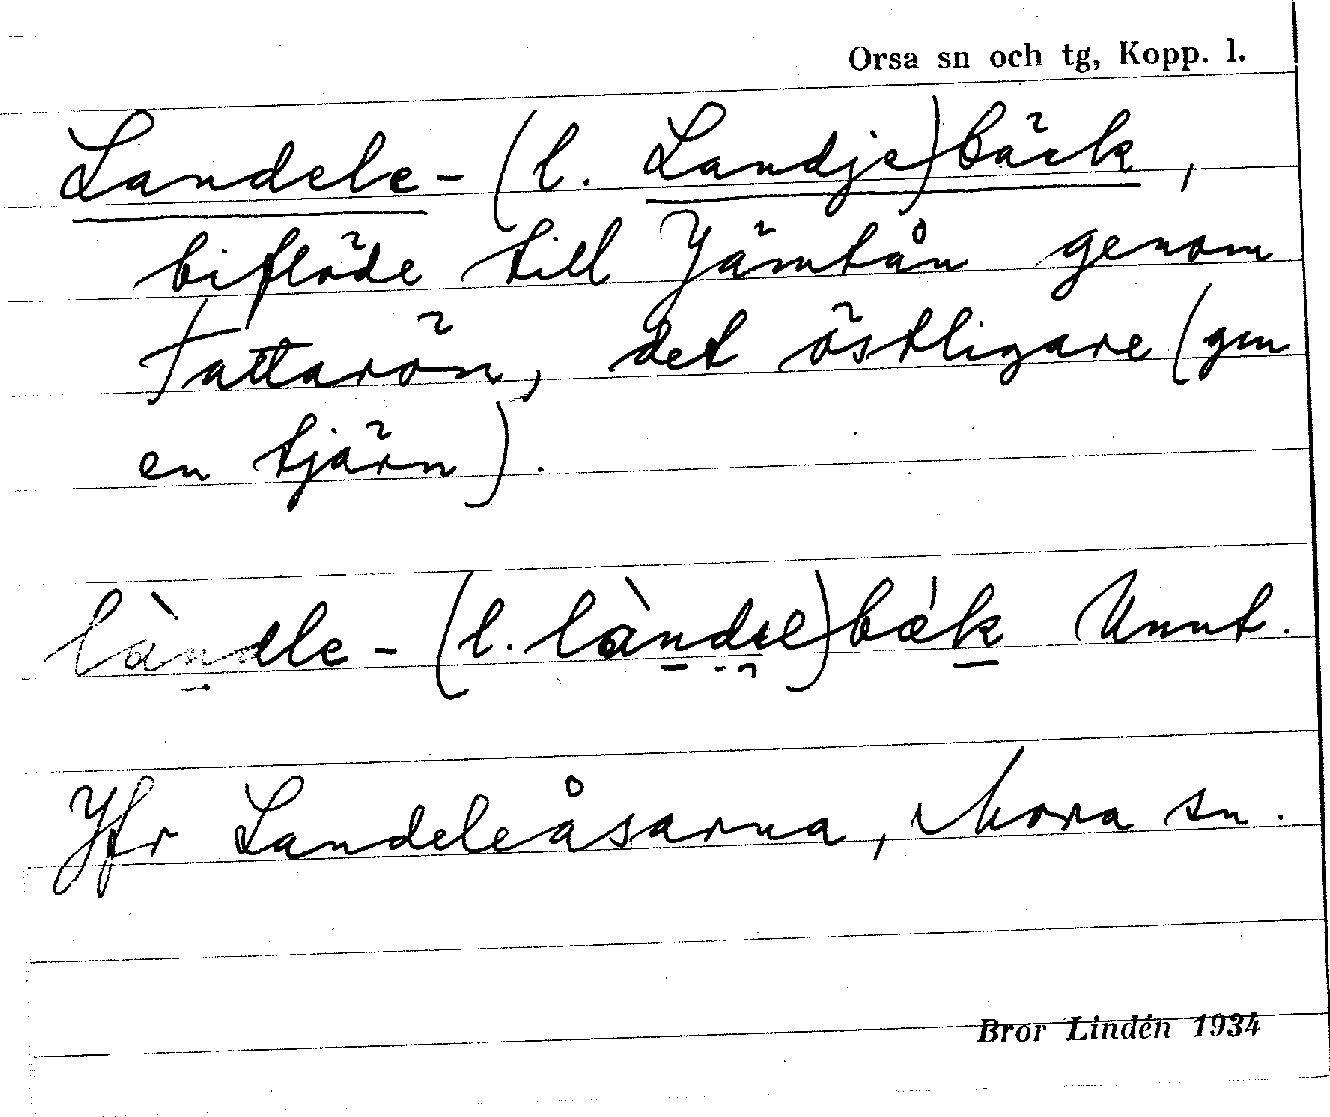 Orsa sn och tg, Kopp. l.
Landele- (l. Landje)bäck,
biflöde till Jämtån genom
Tattarån, det östligare (gm
en tjärn).
làndle- (l. làndɛl)bæ̀k Unnt.
Jfr Landeleåsarna, Mora sn.
Bror Lindén 1934